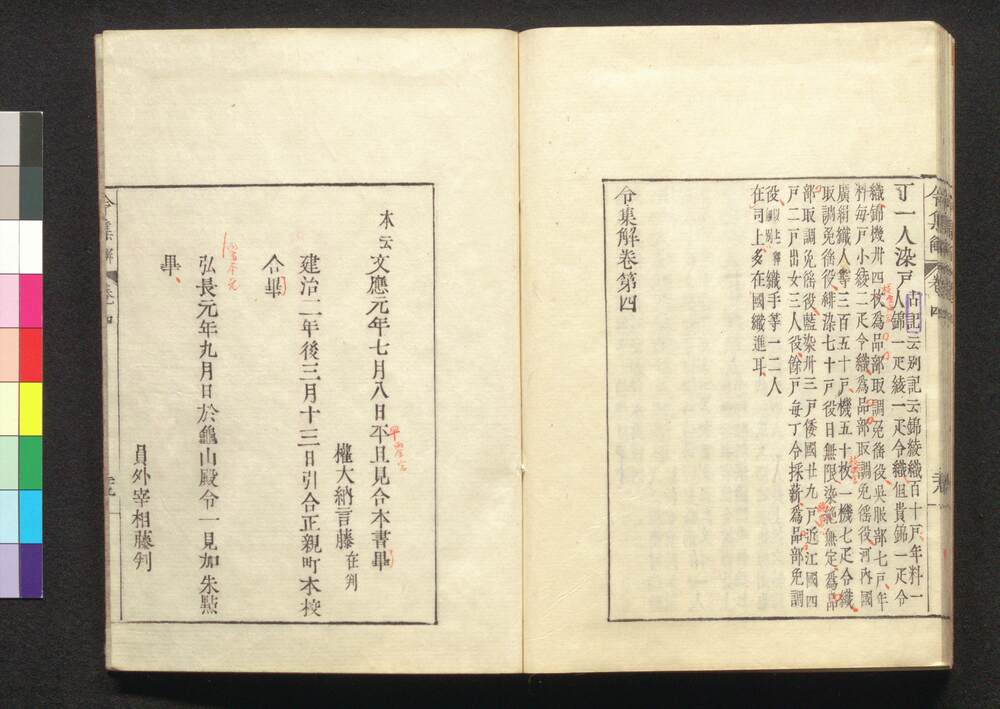 令集解 卷四
丁一人染戸古記云別記云錦綾織百十戸年料一
人錦一疋綾一疋令織但貴錦一疋令
織錦機卅四枚爲品部取調免徭役呉服部七戸年
料毎戸小綾二疋令織爲品部取調免徭役河内國
廣絹織人等三百五十戸機五十枚一機七疋令織
取調免徭役緋染七十戸役日無限染絁無定爲品
部取調免徭役藍染卅三戸倭國廿九戸近江國四
戸二戸出女三人役餘戸毎丁令採薪爲品部免調
役織手等一二人
在司上多在國織進耳
令集解卷第四
本云文應元年七月八日平旦見合本書畢
權大納言藤在判
建治二年後三月十三日引合正親町本校
合畢
弘長元年九月日於龜山殿令一見加朱㸃
畢
員外宰相藤判
令集解 卷四